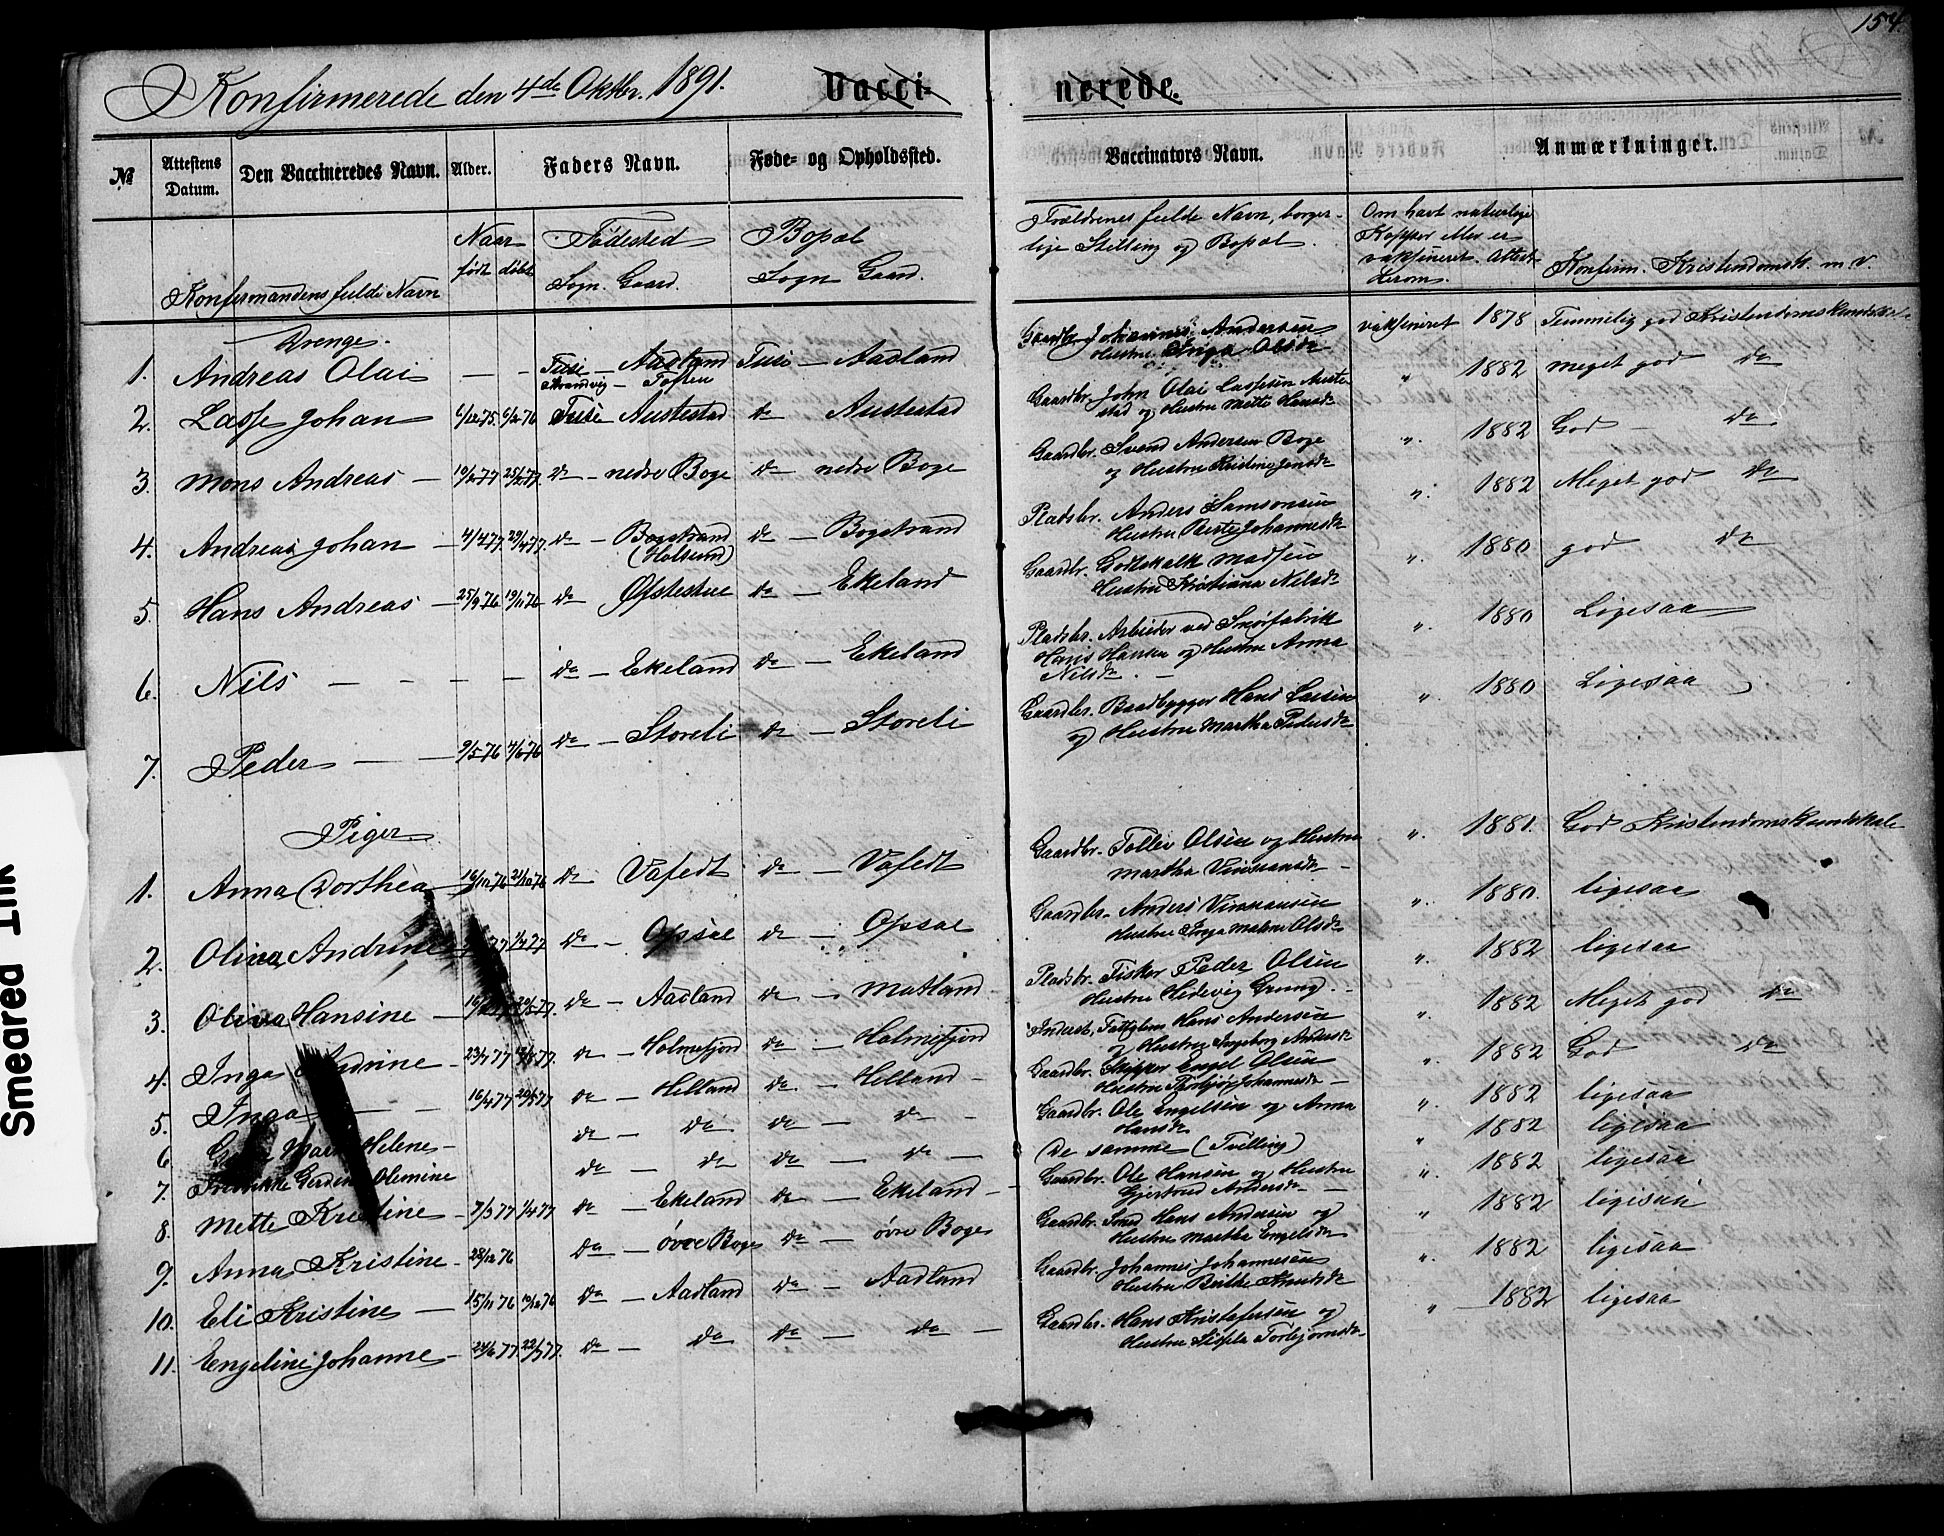 154.
Konfirmerede den 4de Oktbr. 1891. Vacci- nerede.
№ Attestens Datum. Den Vaccineredes Navn. Alder. Faders Navn. Føde- og Opholdssted. Vaccinators Navn. Anmærkninger.
Konfirmandens fulde Navn Naar født døbt Fødested Sogn. Gaard. Bopæl Sogn Gaard. Forældrenes fulde Navn, borgerlige Stilling og Bopæl. Om havt naturlige Kopper eller er vaksineret. Attest herom. Konfirm. Kristendomsk. m. v.
Drenge.
1. Andreas Olai — - Fusi — Aadland Strandvig — Toften Fusi — Aadland Gaardbr. Johannes Andersen Hustru Inga Olsdr vaksineret 1878 Temmelig god Kristendomskundskab
2. Lasse Johan 6/12 75. Fusi Austestad do Austestad Gaardbr. John Olai Lassesen Austestad og Hustru Mette Hansdr " 1882 meget god do
3. Mons Andreas — 25/2 77. do — nedre Boge do — nedre Boge Gaardbr. Svend Andersen Boge og Hustru Kristine Jensdr ". 1882 God — do
4. Andreas Johan — 4/4 77 29/4 77. do — Bogstrand (Holsund) do — Bogstrand Pladsbr. Anders Samsonsen Hustru Berte Johannesdr ". 1882 Meget god do
5. Hans Andreas — 25/9 76 19/11 76 do Øfstestue do — Ekeland Gaardbr. Godskalk Madsen Hustru Kristiana Nilsdr ". 1880 god do
6. Nils — — — — do — Ekeland do — Ekeland Pladsbr. Arbeider ved Snørfabrik Hans Hansen og Hustru Anna Nilsdr. — ". 1880 Ligesaa
7. Peder — — 9/5 76 4/6 76 do — Storeli do — Storeli Gaardbr. Baadbygger Hans Larsen og Hustru Martha Pedersdr ". 1880 Ligesaa
Piger.
1. Anna Dorthea do Vafedt do — Vafedt Gaardbr. Tollev Olsen og Hustru Martha — ". 1881. God Kristendomskundskab
2. Oliva Andrine do — Opsal do — Opsal Gaardbr. Anders Hustru Inga Malene Olsdr ". 1880. ligesaa
3. Oliva Hansine — do — Aadland do — Matland Pladsbr. Fisker Peder Olsen Hustru Hedevig Grung. — ". 1882 ligesaa
4. Inga Andrine — do — Holmefjord do — Holmefjord Inderst, Hans Andersen og Hustru Ingeborg Andersdr ". 1882 Meget god do
5. Inga — — 16/4 77 do — Helland do. — Helland — Gaardbr. Skipper Engel Olsen Hustru Thorbjør Johannesdr — ". 1882 God do
6 Marie Helene — do — do do — do — Gaardbr. Ole Engelsen og Anna Hansdr " 1882 ligesaa
7. Olemine do — do do — do — De samme (Tvilling) " 1882 ligesaa
8. Mette Kristine — 7/3 77 1/4 77 do — Ekeland do — Ekeland — Gaardbr. Ole Hansen og Hustru Gjertrud Andersdr — ". 1882 ligesaa
9. Anna Kristine — 28/12 76 do — øvre Boge do — øvre Boge Gaardbr. Smed Hans Andersen og Hustru Martha Engelsdr " 1882 ligesaa
10. Eli Kristine — 15/11 76 do — Aadland do — Aadland Gaardbr. Johannes Johannesen Hustru Knudsdr ". 1882 ligesaa
11. Engeline Johanne — 24/6 77. 22/7 77. do — do do — do — Gaardbr. Hans Kristofersen og Hustru Torbjørnsdr " 1882 ligesaa
Smedred Ink